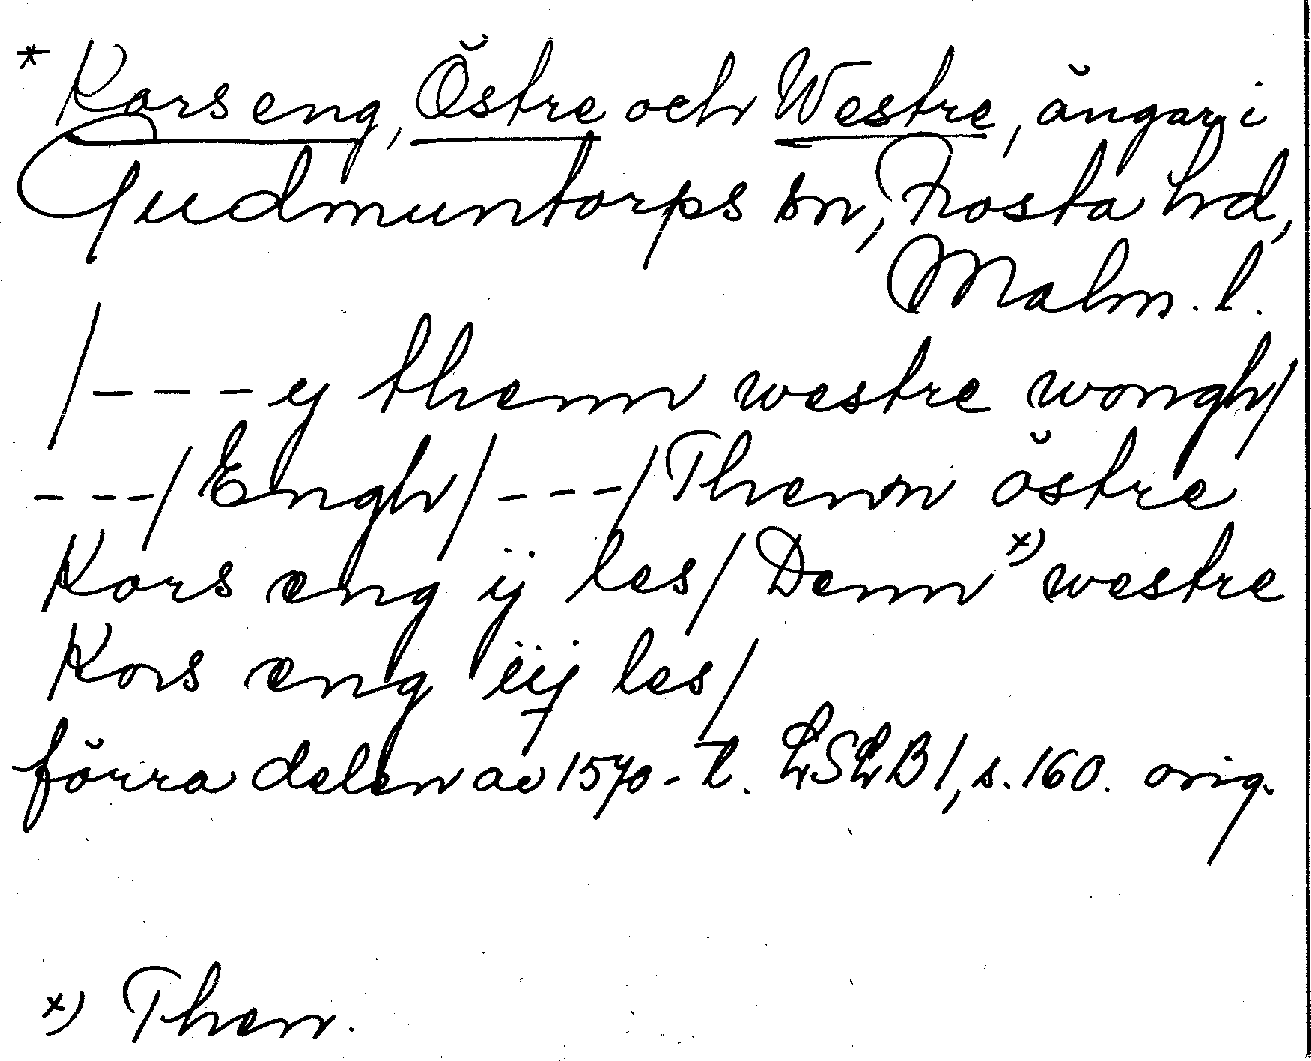 * Kors eng, Östre och Westre, ängar i
Gudmuntorps sn, Frosta hd,
Malm. l.
/---y thenn westre wongh/
---/Engh/---/Thenn östre
Kors eng ij les/Denn x) westre
Kors eng iij les/
förra delen av 1570-t. LSLB 1, s. 160. orig.
x) Then.